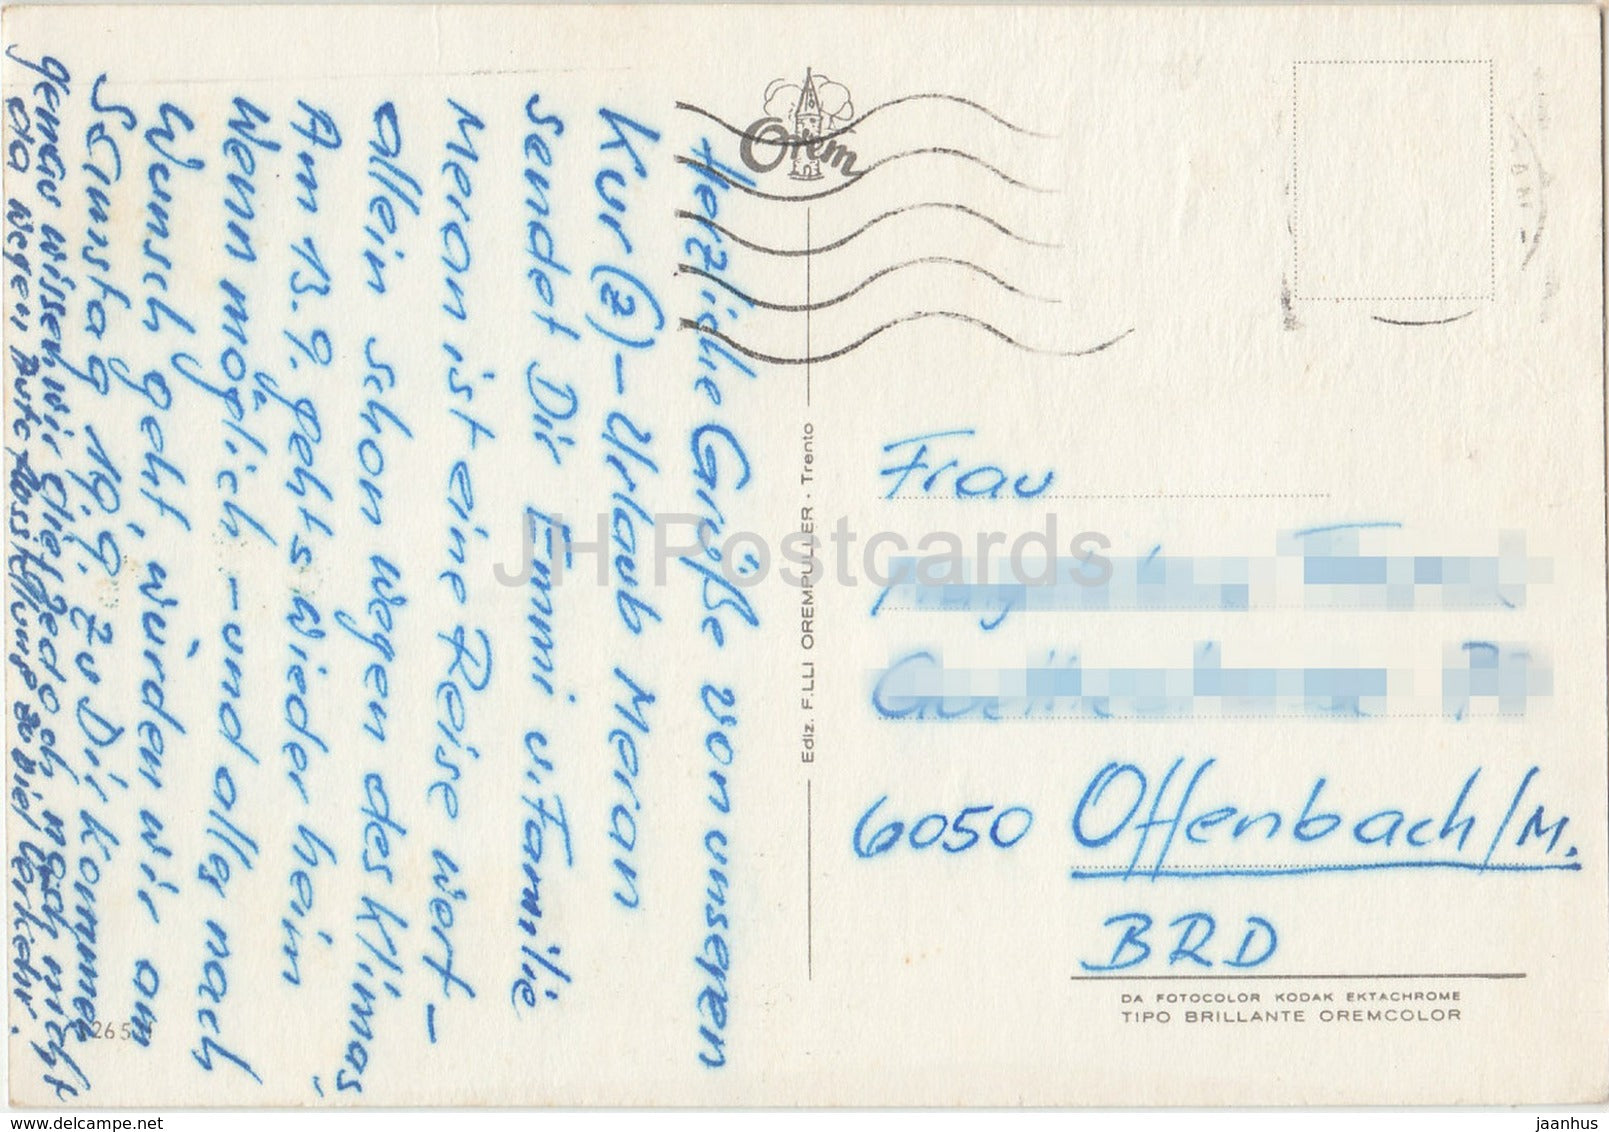 Herzliche Grüße von unseren
Kur(z)-Urlaub Meran
sendet Dir Emmi u. Familie
Meran ist eine Reise wert-
allein schon wegen des Klimas,
Am 13. 9. gehts wieder heim
Wenn möglich - und alles nach
Wunsch geht, würden wir am
Samstag 19. 9. zu Dir kommen
genau wissen wir dies jedoch noch nicht
da wegen Ausstellung zu viel Verkehr.
265
Orem
Ediz. F.LLI OREMPULLER - Trento
Frau
6050 Offenbach/M.
BRD
DA FOTOCOLOR KODAK EKTACHROME
TIPO BRILLANTE OREMCOLOR
JH Postcards
jaanhus